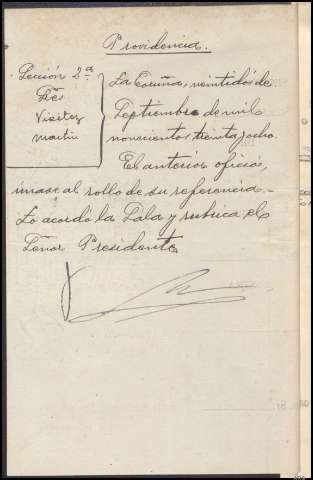 Providencia.
Sección 2ª
Sres
Martin
La Coruña, veintidós de
Septiembre de mil
novecientos treinta y ocho.
El anterior oficio,
únase al rollo de su referencia.-
Lo acordó la Sala y rubrica el
Señor Presidente